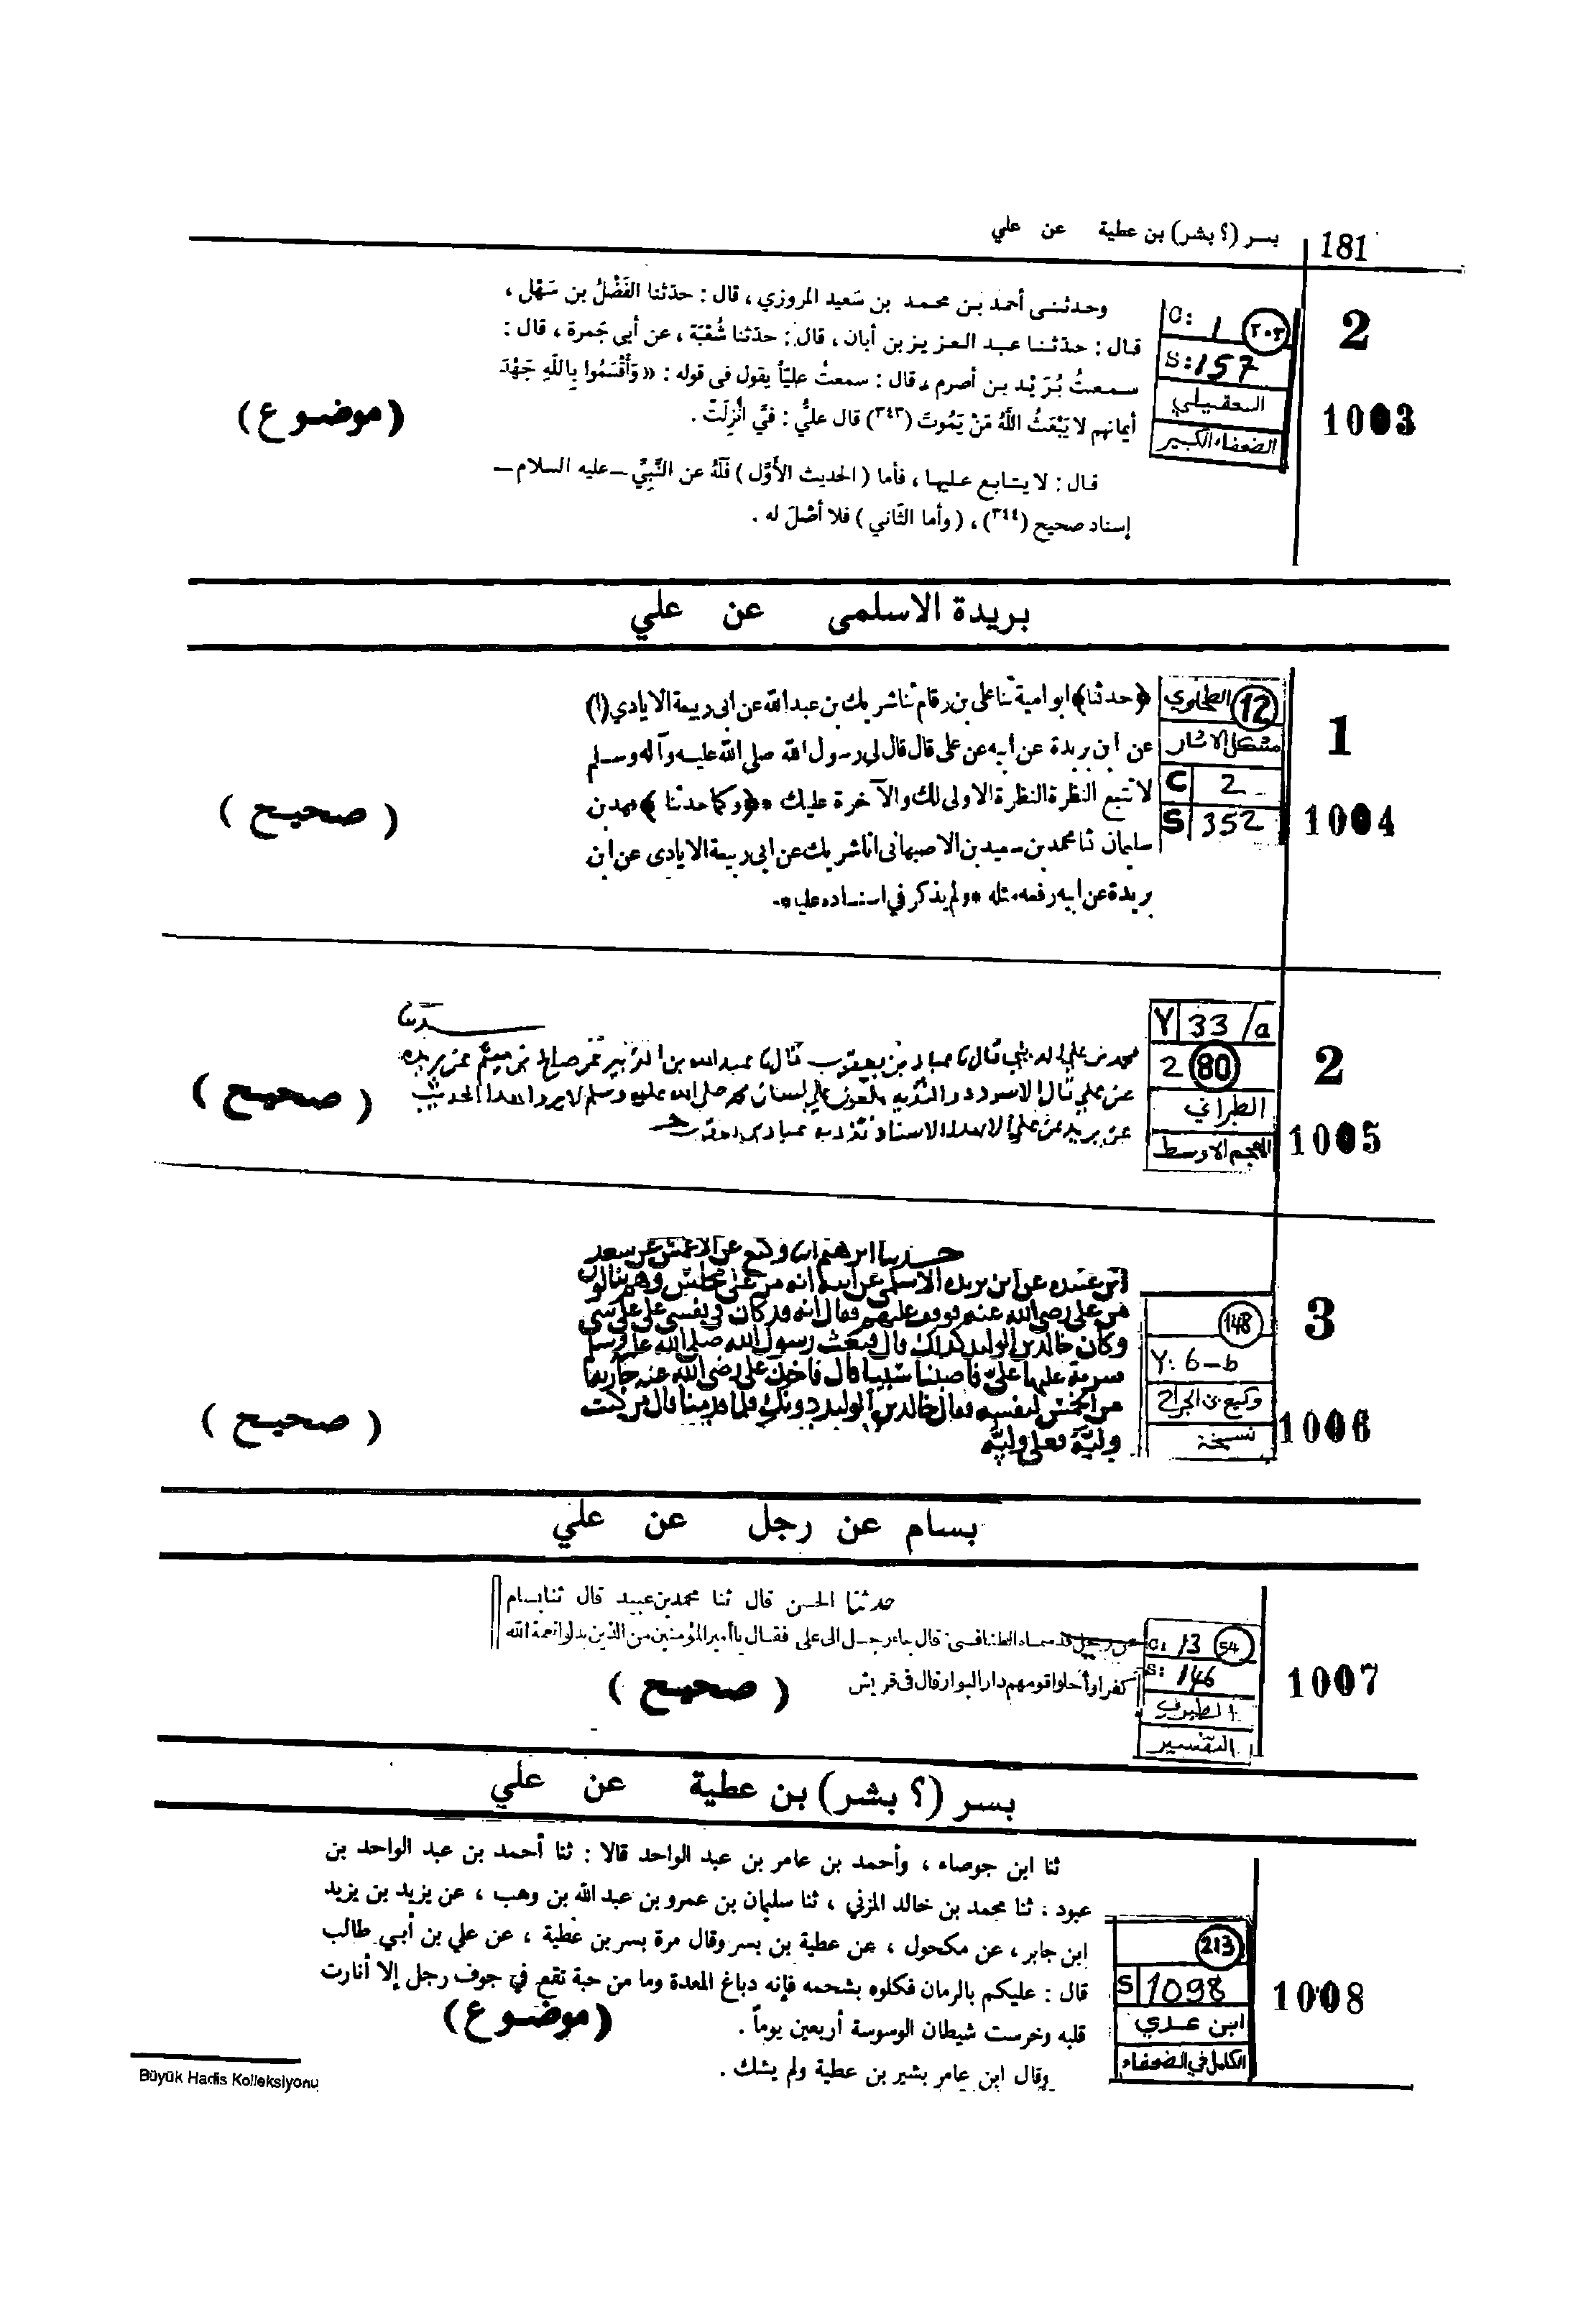 181 بسر (؟ بشر) بن عطية عن علي
2
1003
C: 1 ٢٠٣
S: 157
العقيلي
الضعفاء الكبير
وحدثني أحمد بن محمد بن سَعيد المروزي ، قال : حدّثنا الفَضْلُ بن سَهْل ،
قال : حدّثنا عبد العزيز بن أبان ، قال : حدّثنا شُعْبَة ، عن أبي جَمرة ، قال :
سمعتُ بُرَيْد بن أصرم ، قال : سمعتُ عليّاً يقول في قوله : « وَأَقْسَمُوا بِاللَّهِ جَهْدَ
أيمانهم لا يَبْعَثُ اللَّهُ مَنْ يَمُوتَ (٣٤٣) قال عليُّ : فيَّ أُنْزِلَتْ .
(موضوع)
قال : لا يتابع عليها ، فأما ( الحديث الأَوَّل ) فَلَهُ عن النَّبِيِّ – عليه السلام –
إسناد صحيح (٣٤٤) ، ( وأما الثّاني ) فلا أصْلَ له .
بريدة الاسلمى عن علي
1
1004
12 الطحاوي
مشكل الاثار
C 2
S 352
﴿حدثنا﴾ ابو امية ثنا على بن رقام ثنا شريك بن عبد الله عن ابى ربيعة الايادي (١)
عن ابن بريدة عن ابيه عن على قال قال لي رسول الله صلى الله عليه وآله وسلم
لا تتبع النظرة النظرة الاولى لك والآخرة عليك * ﴿وكما حدثنا﴾ فهد بن
سليمان ثنا محمد بن سعيد بن الاصبهانى انا شريك عن ابى ربيعة الايادى عن ابن
بريدة عن ابيه رفعه مثله * ولم يذكر في اسناده عليا * .
( صحيح )
2
1005
Y 33/a
2 80
الطبراني
المعجم الاوسط
حدثنا
محمد بن علي قال نا عباد بن يعقوب قال نا عبد الله بن الزبير عن صالح بن ميثم عن بريده
عن علي قال الاسود ذو الثديه ملعون على لسان محمد صلى الله عليه وسلم لا يروا هذا الحديث
عن بريد عن علي الا بهذا الاسناد تفرد به عباد بن يعقوب
( صحيح )
3
1006
148
Y: 6-b
وكيع بن الجراح
نسخة
حدثنا ابرهيم انا وكيع عن الاعمش عن سعد
ابن عبيده عن ابن بريده الاسلمي عن ابيه انه مر على مجلس وهم ينالون
من علي رضي الله عنه فوقف عليهم فقال انه قد كان في نفسي على علي شي
وكان خالد بن الوليد كذلك قال فبعث رسول الله صلى الله عليه وسلم
سرية عليها علي فاصبنا سبيا قال فاخذ علي رضي الله عنه جارية
من الخمس لنفسه فقال خالد بن الوليد دونك فلما قدمنا قال من كنت
وليه فعلي وليه
( صحيح )
بسام عن رجل عن علي
1007
C: 13 54
S: 146
الطبري
التفسير
حدثنا الحسن قال ثنا محمد بن عبيد قال ثنا بسام
عن رجل قد سماه الطنافسي قال جاء رجل الى على فقال يا أمير المؤمنين من الذين بدلوا نعمة الله
كفرا وأحلوا قومهم دار البوار قال في قريش
( صحيح )
بسر (؟ بشر) بن عطية عن علي
1008
213
S 1098
ابن عدي
الكامل في الضعفاء
ثنا ابن جوصاء ، وأحمد بن عامر بن عبد الواحد قالا : ثنا أحمد بن عبد الواحد بن
عبود ، ثنا محمد بن خالد المزني ، ثنا سليمان بن عمرو بن عبد الله بن وهب ، عن يزيد بن يزيد
ابن جابر ، عن مكحول ، عن عطية بن بسر وقال مرة بسر بن عطية ، عن علي بن أبي طالب
قال : عليكم بالرمان فكلوه بشحمه فإنه دباغ المعدة وما من حبة تقع في جوف رجل إلا أنارت
قلبه وخرست شيطان الوسوسة أربعين يوماً .
(موضوع)
وقال ابن عامر بشير بن عطية ولم يشك .
Büyük Hadis Kolleksiyonu